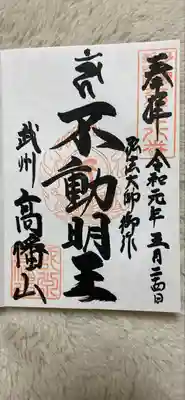 奉拝
令和元年五月二四日
弘法大師御作
不動明王
武州
高幡山